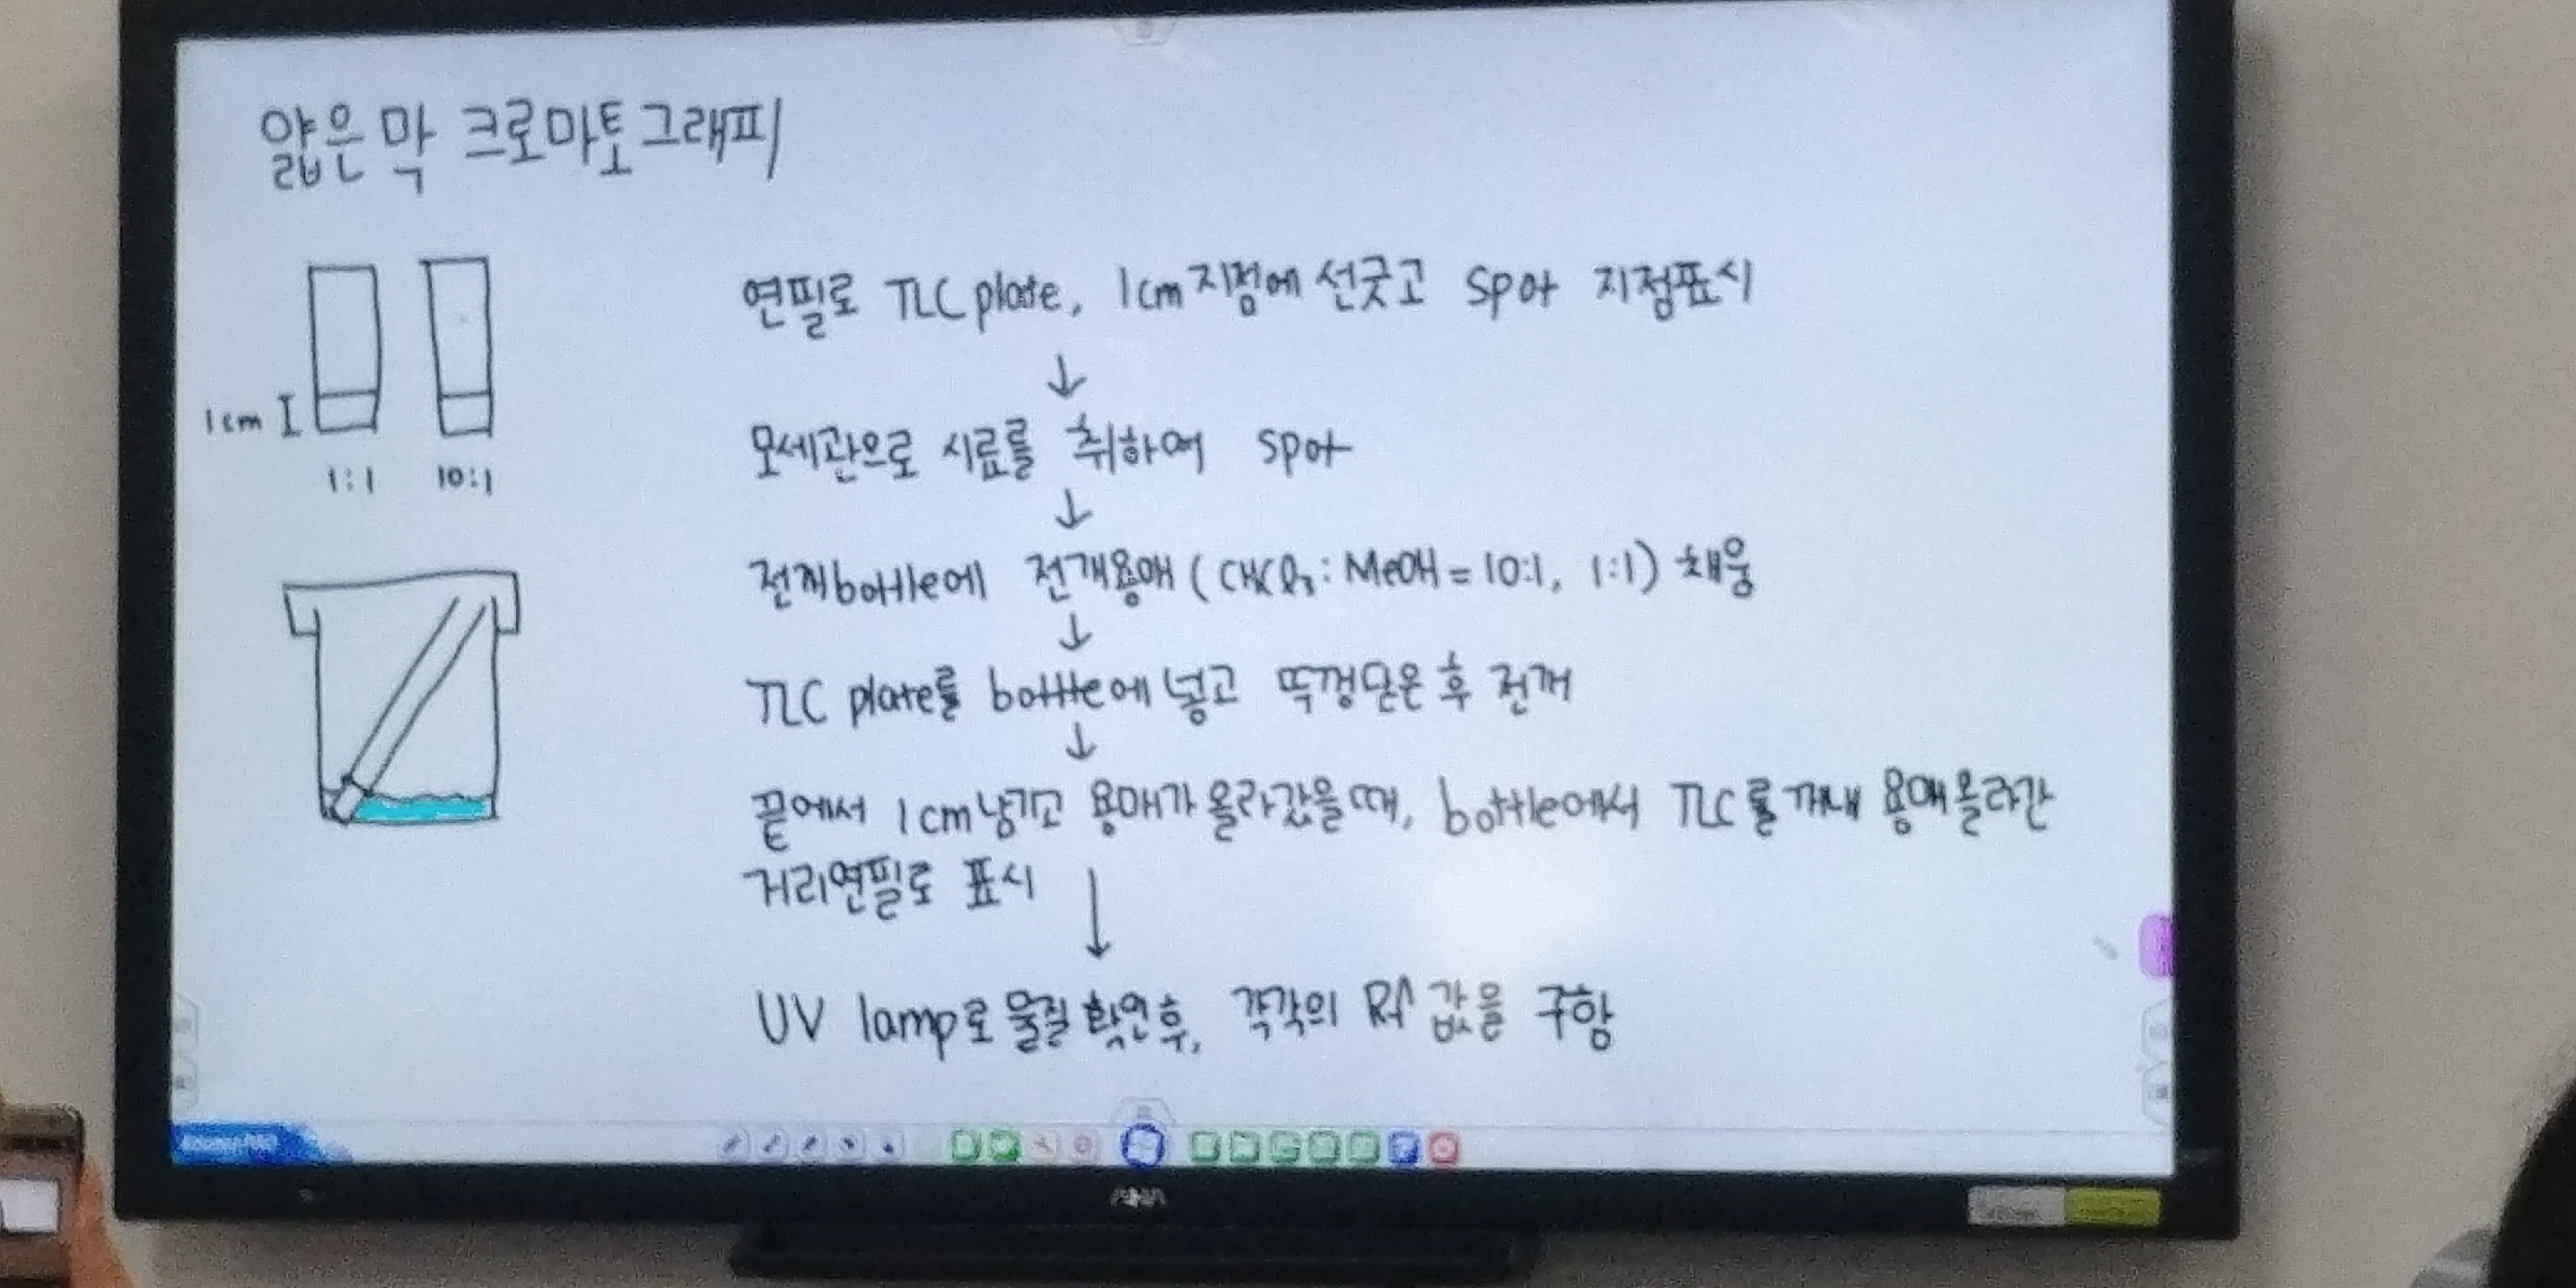 얇은 막 크로마토그래피
연필로 TLC plate, 1cm 지점에 선긋고 spot 지점표시
1cm
모세관으로 시료를 취하여 spot
1:1 10:1
전개bottle에 전개용매 (CHCl₃:MeOH = 10:1, 1:1) 채움
TLC plate를 bottle에 넣고 뚜껑닫은 후 전개
끝에서 1cm남기고 용매가 올라갔을때, bottle에서 TLC를 꺼내 용매올라간
거리연필로 표시
UV lamp로 물질 확인후, 각각의 Rf 값을 구함